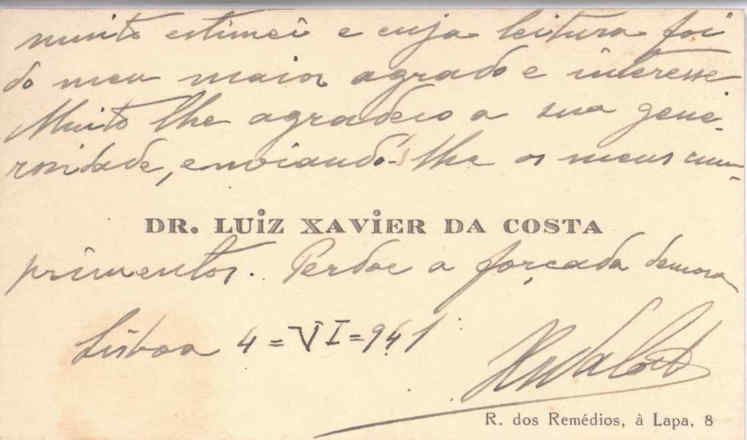 muito estimei e cuja leitura foi
do meu maior agrado e interesse
Muito lhe agradeço a sua gene-
rosidade, enviando-lhe os meus cum-
DR. LUIZ XAVIER DA COSTA
primentos. Perdoe a forçada demora
Lisboa 4=VI=941
R. dos Remédios, à Lapa, 8